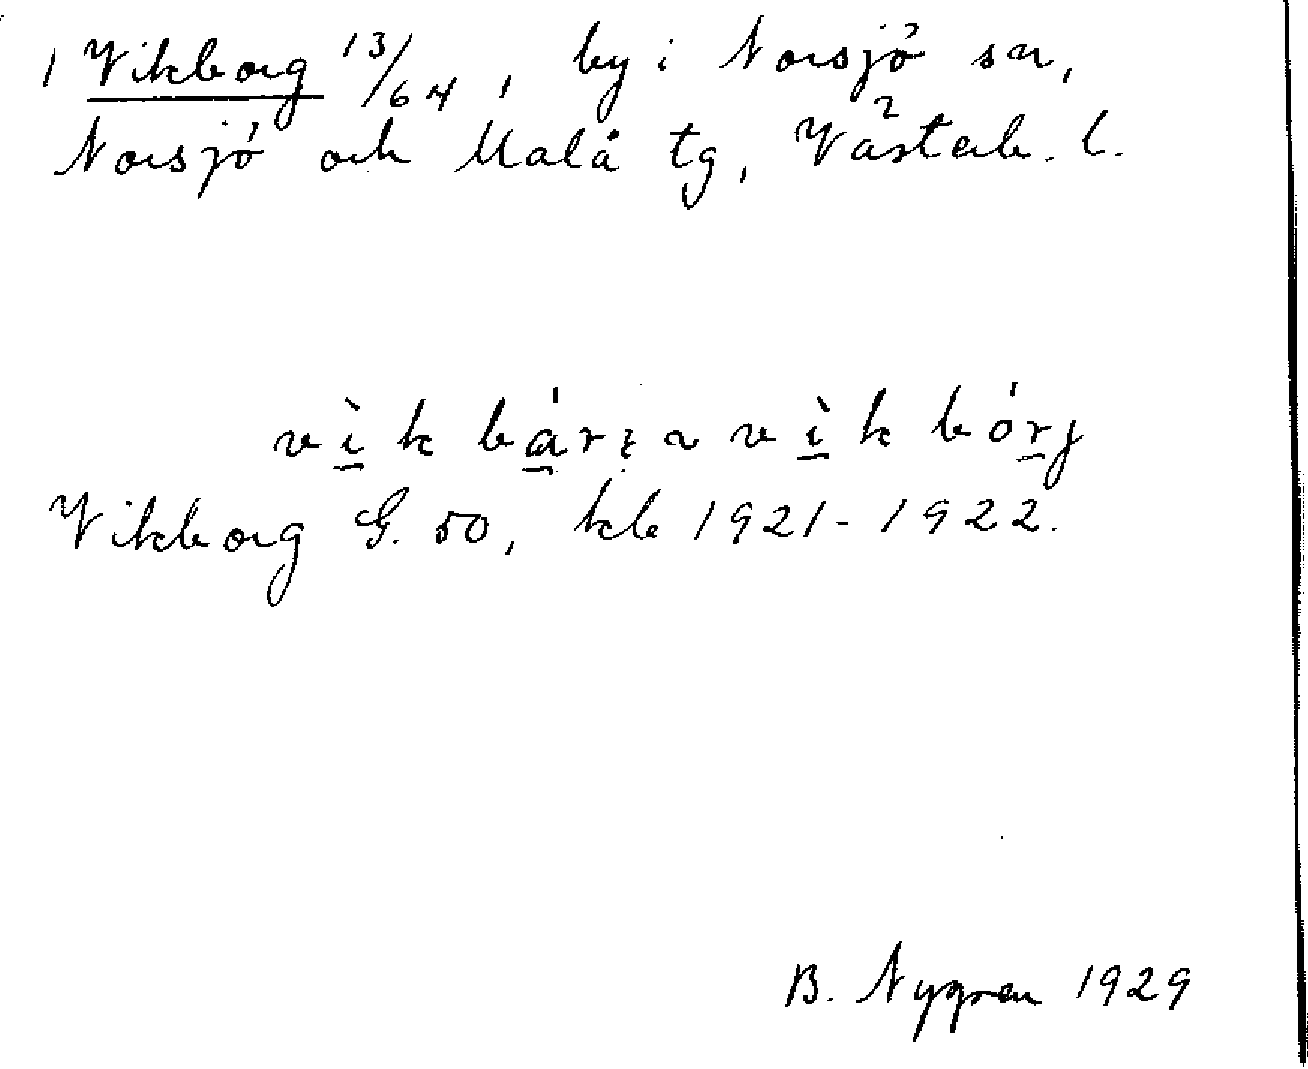 1 Vikborg 13/64, by i Norsjö sn,
Norsjö och Malå tg, Västerb. l.
vì̲k bá̲rɩ ~ vì̲k bór̲j
Vikborg G. 50, kb 1921-1922.
B. Nygren 1929